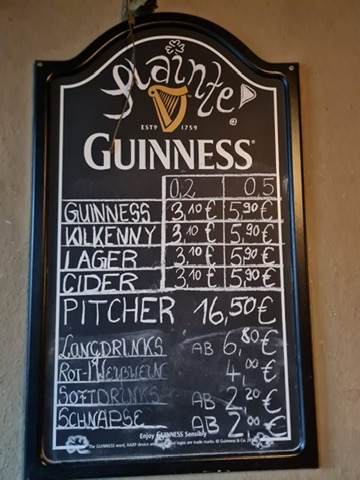 Slainte
ESTD 1759
GUINNESS
0,2 0,5
GUINNESS 3,10 € 5,90 €
KILKENNY 3,10 € 5,90 €
LAGER 3,10 € 5,90 €
CIDER 3,10 € 5,90 €
PITCHER 16,50 €
LONGDRINKS AB 6,80 €
ROT-/WEIßWEIN 4,00 €
SOFTDRINKS AB 2,20 €
SCHNÄPSE AB 2,00 €
Enjoy GUINNESS Sensibly
The GUINNESS word, HARP device and associated logos are trade marks. © Guinness & Co.